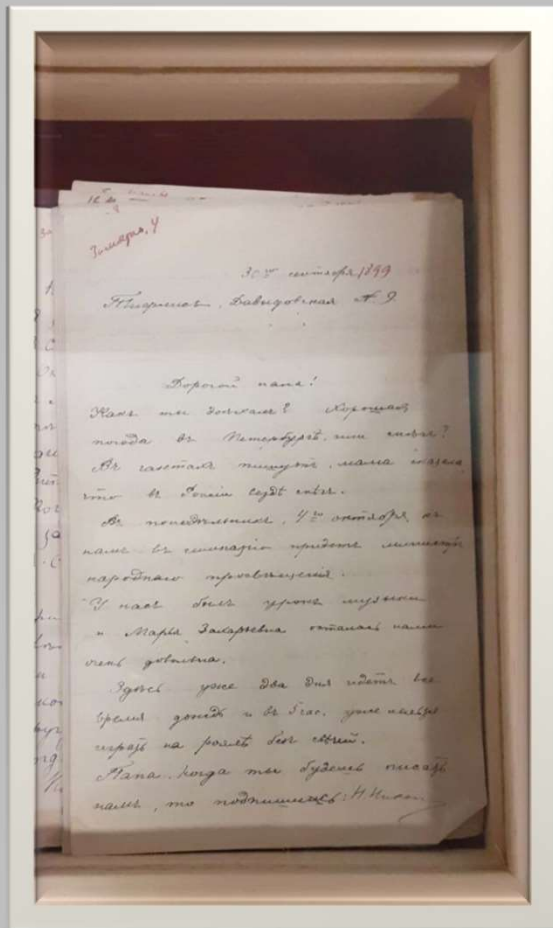 30го сентября 1899
Тифлисъ. Давыдовская № 9.
Дорогой папа!
Какъ ты доѣхалъ? Хорошая
погода въ Петербургѣ, или
Въ газетахъ пишутъ, мама сказала,
что въ Россіи вездѣ снѣгъ.
Въ понедѣльникъ, 4го октября, къ
намъ въ гимназію придетъ министръ
народнаго просвѣщенія.
У насъ былъ урокъ музыки
и Марья Захарьевна осталась нами
очень довольна.
Здѣсь уже два дня идетъ все
время дождь и въ 5 час. уже нельзя
играть на роялѣ безъ свѣчей.
Папа, когда ты будешь писать
намъ, то подпишись: Н.